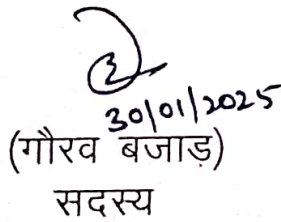 30/01/2025
(गौरव बजाड़)
सदस्य